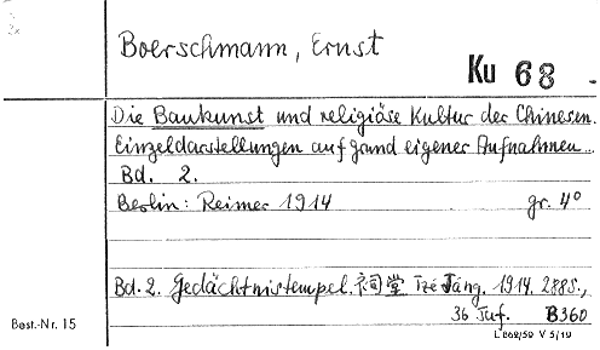 2x
Boerschmann, Ernst
Ku 68
Die Baukunst und religiöse Kultur der Chinesen.
Einzeldarstellungen auf grund eigener Aufnahmen...
Bd. 2.
Berlin: Reimer 1914 gr. 4°
Bd. 2. Gedächtnistempel. 祠堂 Tzé Táng. 1914. 288S.,
36 Taf. B360
Best.-Nr. 15
V 5/19